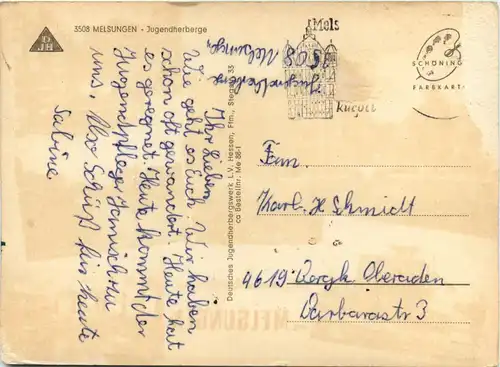 3508 MELSUNGEN · Jugendherberge
DJH
Ihr Lieben
Wie geht es Euch. Wir haben
schon oft gewandert. Heute hat
es geregnet. Heute kommt der
Jugendpfleger zu
uns. Also Schluß für heute
Sabine
Jugendherberge
3508 Melsungen
Deutsches Jugendherbergswerk L.V. Hessen, Ffm., Stegstr. 33
ca Bestellnr. Me 86-1
Mels
kurort
SCHÖNING
FARBKARTE
Fam.
Karl. H Schmidt
4619 Bergk. Oberaden
Barbarastr 3
MELSUNGEN